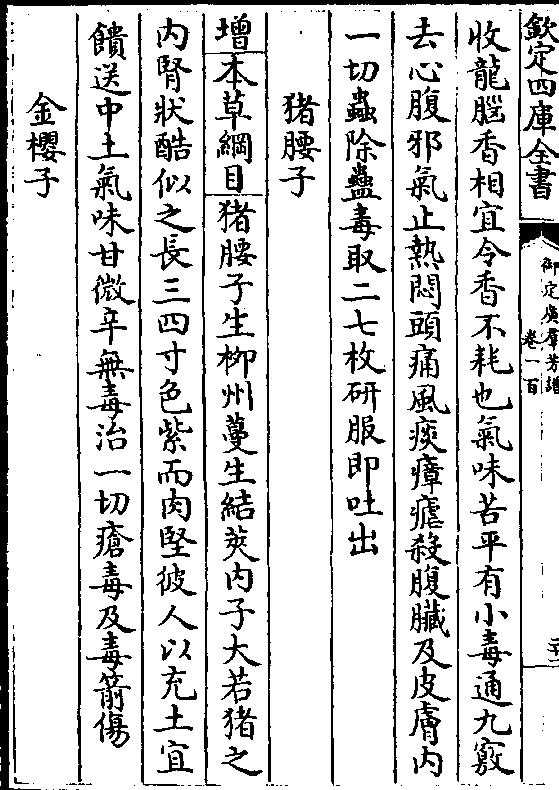 欽定四庫全書
御定廣羣芳譜
卷一百
收龍腦香相宜令香不耗也氣味苦平有小毒通九竅
去心腹邪氣止熱悶頭痛風痰瘴瘧殺腹臟及皮膚内
一切蟲除蠱毒取二七枚研服即吐出
猪腰子
增本草綱目猪腰子生柳州蔓生結莢内子大若猪之
内腎狀酷似之長三四寸色紫而肉堅彼人以充土宜
饋送中土氣味甘微辛無毒治一切瘡毒及毒箭傷
金櫻子